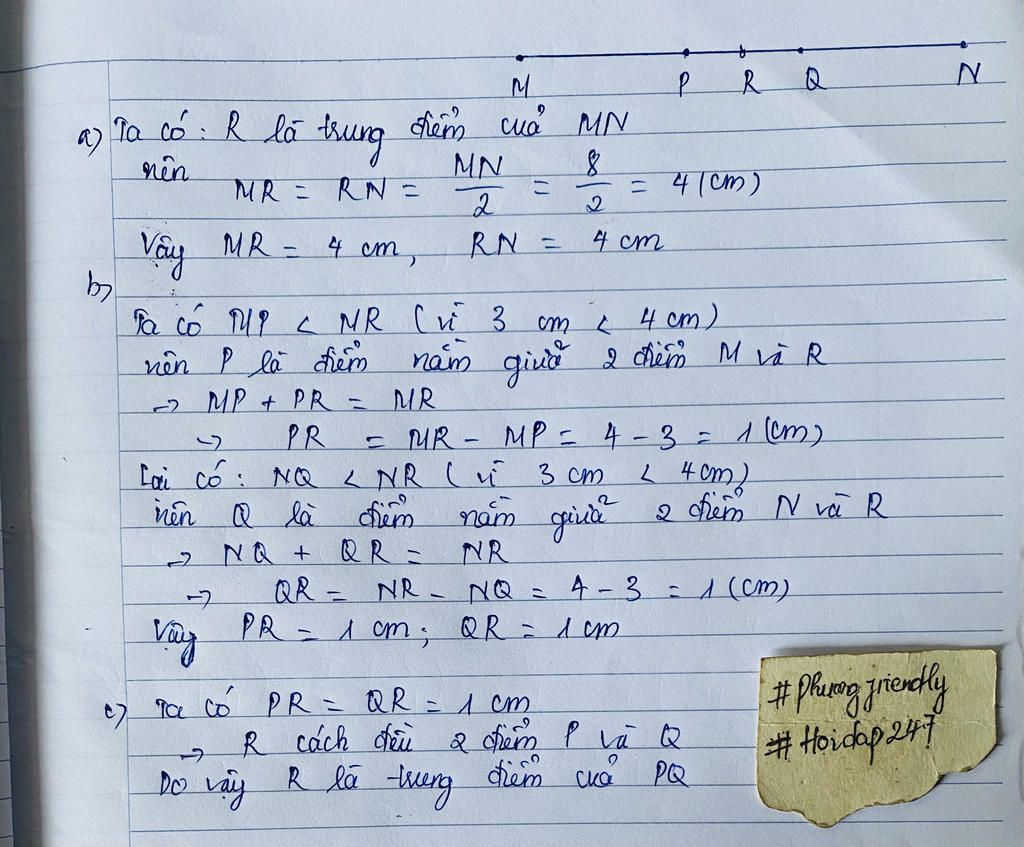 M P R Q N
a) Ta có: R là trung điểm của MN
nên MR = RN = MN/2 = 8/2 = 4 (cm)
Vậy MR = 4 cm, RN = 4 cm
b)
Ta có MP < MR (vì 3 cm < 4 cm)
nên P là điểm nằm giữa 2 điểm M và R
→ MP + PR = MR
→ PR = MR - MP = 4 - 3 = 1 (cm)
Lại có: NQ < NR (vì 3 cm < 4 cm)
nên Q là điểm nằm giữa 2 điểm N và R
→ NQ + QR = NR
→ QR = NR - NQ = 4 - 3 = 1 (cm)
Vậy PR = 1 cm; QR = 1 cm
c) Ta có PR = QR = 1 cm
→ R cách đều 2 điểm P và Q
Do vậy R là trung điểm của PQ
#Phuongfriendly
#Hoidap247